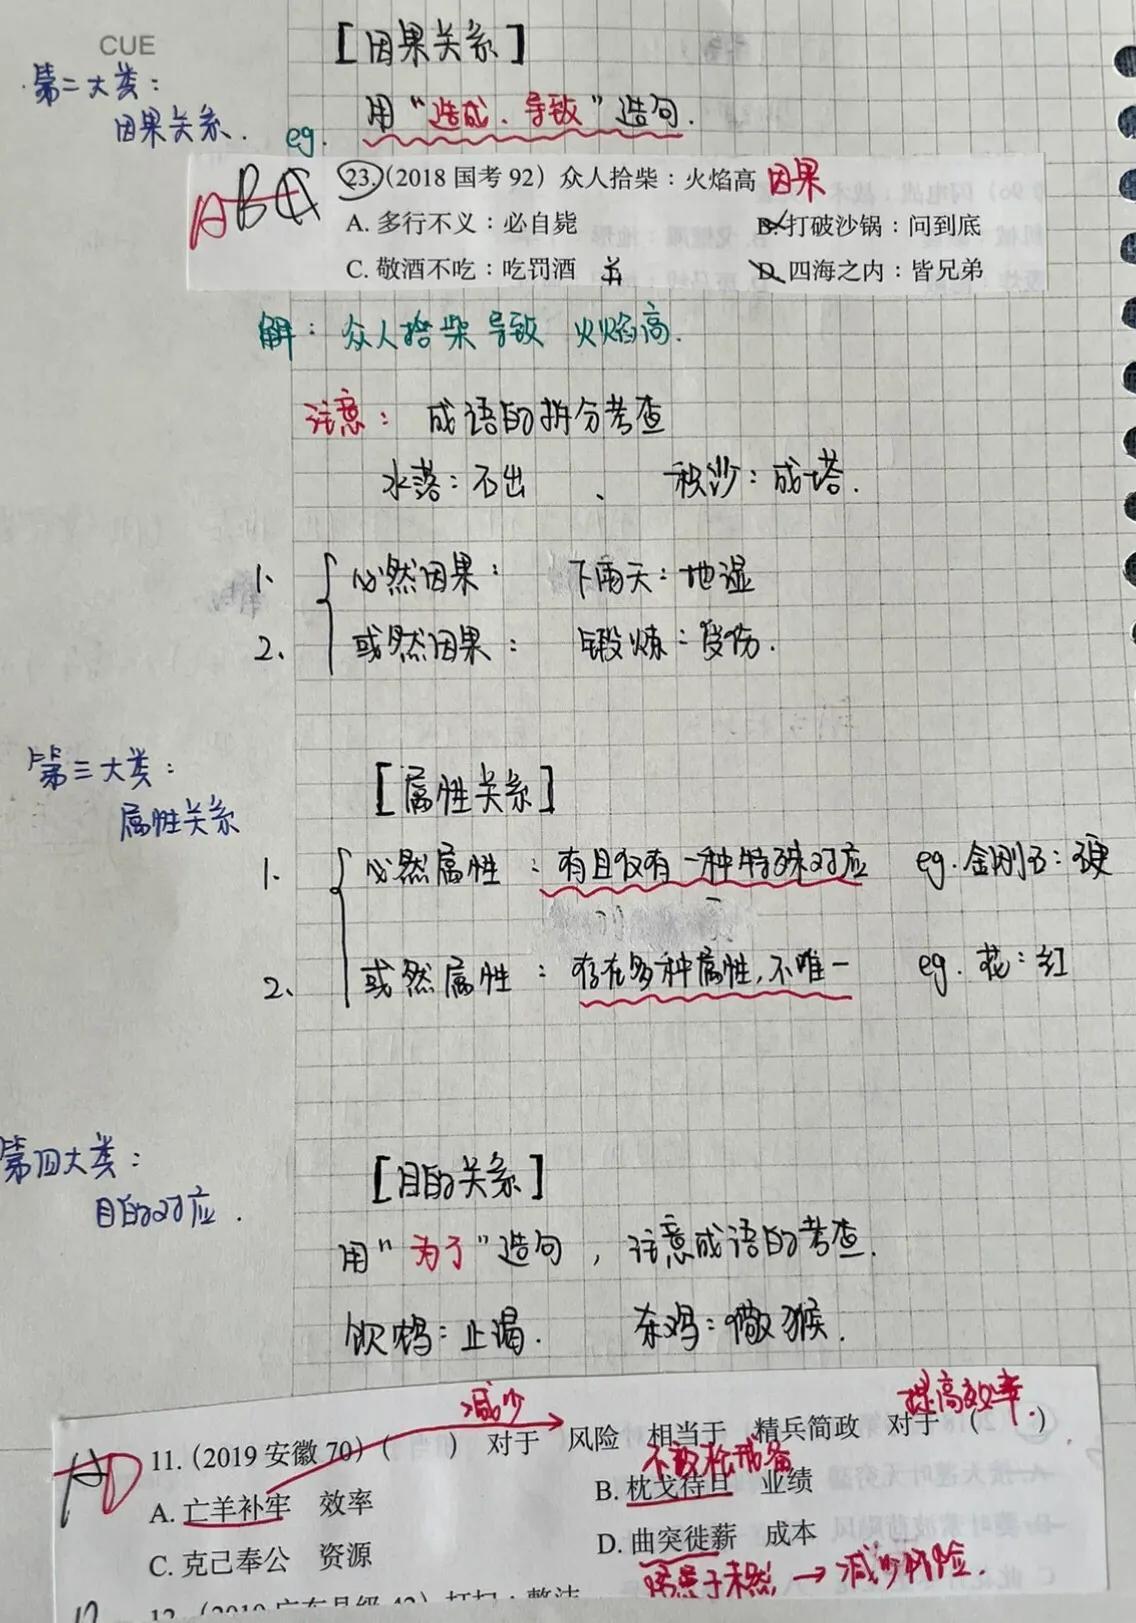 CUE
[因果关系]
第二大类：
因果关系.
用“造成、导致”造句.
eg.
ABC 23.(2018 国考 92) 众人拾柴：火焰高 因果
A. 多行不义：必自毙 B. 打破沙锅：问到底
C. 敬酒不吃：吃罚酒 并 D. 四海之内：皆兄弟
解：众人拾柴 导致 火焰高.
注意：成语的拆分考查
水落：石出 、 积沙：成塔.
1、必然因果： 下雨天：地湿
2、或然因果： 锻炼：受伤.
第三大类：
属性关系
[属性关系]
1. 必然属性：有且仅有一种特殊对应 eg. 金刚石：硬
2、或然属性：存在多种属性,不唯一 eg. 花：红
第四大类：
目的对应.
[目的关系]
用“为了”造句，注意成语的考查.
饮鸩：止渴. 杀鸡：儆猴.
减少 提高效率.
AD 11.(2019 安徽 70)( ) 对于 风险 相当于 精兵简政 对于 ( )
不敢松戒备
A. 亡羊补牢 效率 B. 枕戈待旦 业绩
C. 克己奉公 资源 D. 曲突徙薪 成本
防患于未然 → 减少风险.
12. (2019 广东县级 42) 打扫：整洁